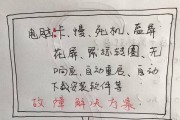 电脑卡、慢、死机、蓝屏
花屏、鼠标转圈、无
响应、自动重启、自动
下载安装软件等
故障解决方案